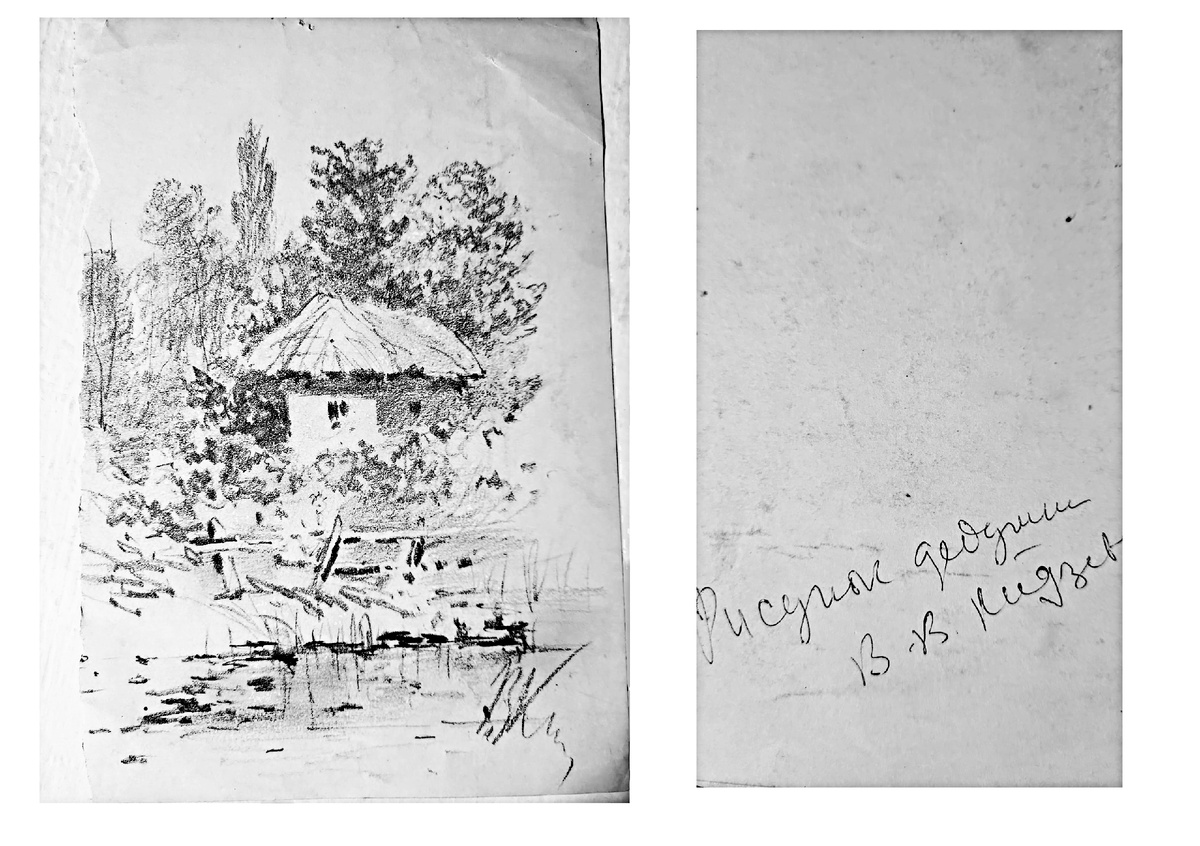 Рисунок дедушки
В. В. Кидзев